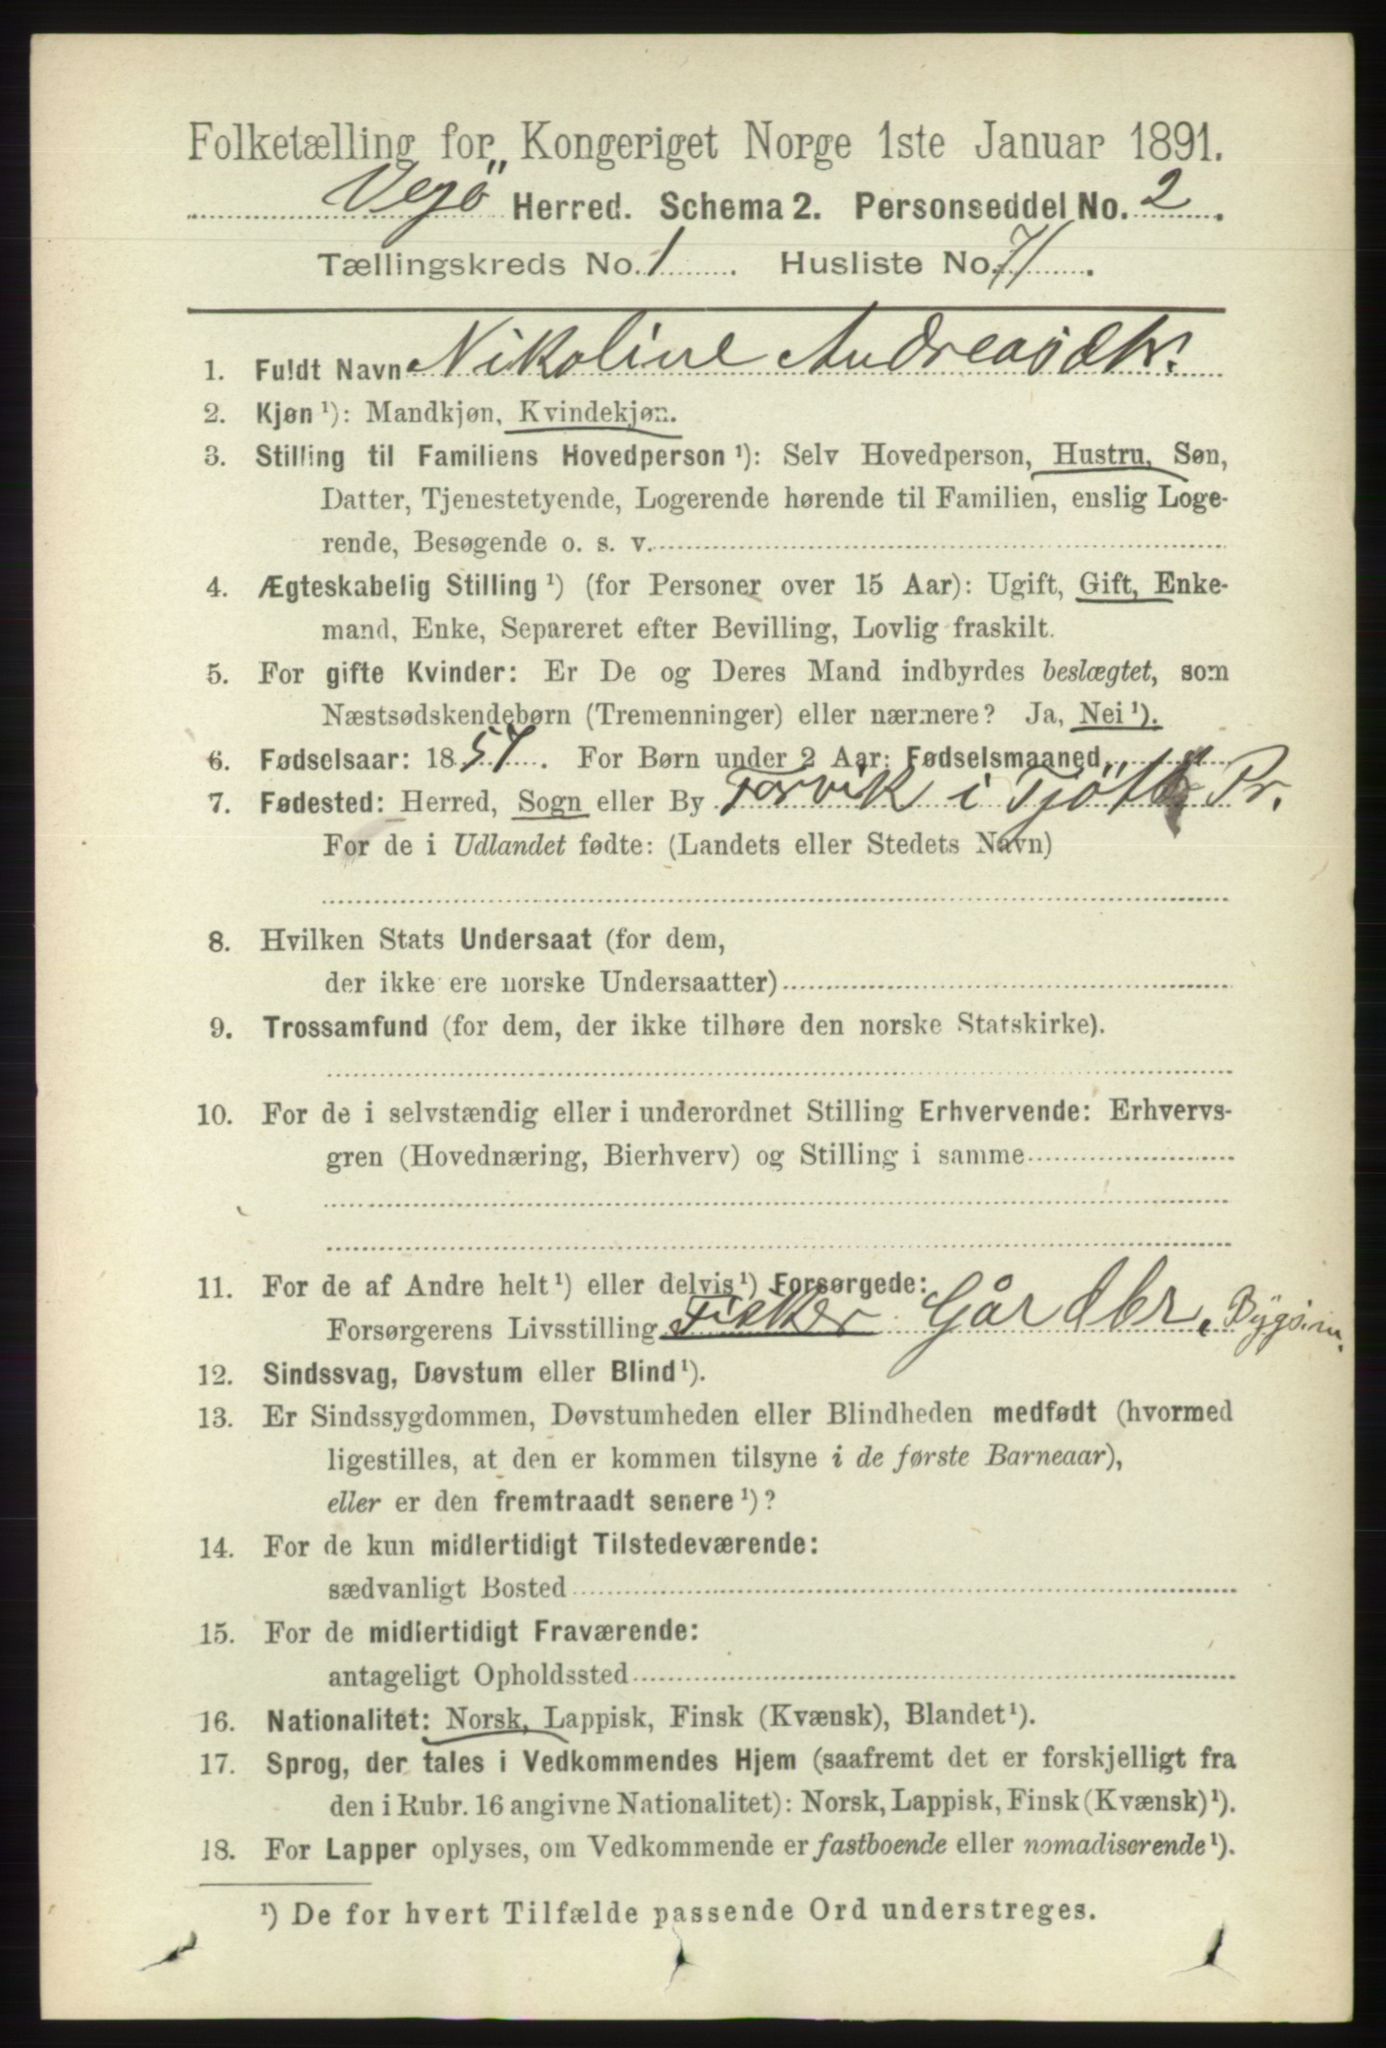 Folketælling for Kongeriget Norge 1ste Januar 1891.
Vegö Herred. Schema 2. Personseddel No. 2.
Tællingskreds No. 1. Husliste No. 71.
1. Fuldt Navn Nikoline Andreasdtr.
2. Kjøn ¹): Mandkjøn, Kvindekjøn.
3. Stilling til Familiens Hovedperson ¹): Selv Hovedperson, Hustru, Søn,
Datter, Tjenestetyende, Logerende hørende til Familien, enslig Loge-
rende, Besøgende o. s. v.
4. Ægteskabelig Stilling ¹) (for Personer over 15 Aar): Ugift, Gift, Enke-
mand, Enke, Separeret efter Bevilling, Lovlig fraskilt.
5. For gifte Kvinder: Er De og Deres Mand indbyrdes beslægtet, som
Næstsødskendebørn (Tremenninger) eller nærmere? Ja, Nei ¹).
6. Fødselsaar: 1857. For Børn under 2 Aar: Fødselsmaaned
7. Fødested: Herred, Sogn eller By Forvik i Tjöttö Pr.
For de i Udlandet fødte: (Landets eller Stedets Navn)
8. Hvilken Stats Undersaat (for dem,
der ikke ere norske Undersaatter)
9. Trossamfund (for dem, der ikke tilhøre den norske Statskirke).
10. For de i selvstændig eller i underordnet Stilling Erhvervende: Erhvervs-
gren (Hovednæring, Bierhverv) og Stilling i samme
11. For de af Andre helt ¹) eller delvis ¹) Forsørgede:
Forsørgerens Livsstilling Fisker Gårdbr.
12. Sindssvag, Døvstum eller Blind ¹).
13. Er Sindssygdommen, Døvstumheden eller Blindheden medfødt (hvormed
ligestilles, at den er kommen tilsyne i de første Barneaar),
eller er den fremtraadt senere ¹)?
14. For de kun midlertidigt Tilstedeværende:
sædvanligt Bosted
15. For de midlertidigt Fraværende:
antageligt Opholdssted
16. Nationalitet: Norsk, Lappisk, Finsk (Kvænsk), Blandet ¹).
17. Sprog, der tales i Vedkommendes Hjem (saafremt det er forskjelligt fra
den i Rubr. 16 angivne Nationalitet): Norsk, Lappisk, Finsk (Kvænsk) ¹).
18. For Lapper oplyses, om Vedkommende er fastboende eller nomadiserende ¹).
¹) De for hvert Tilfælde passende Ord understreges.